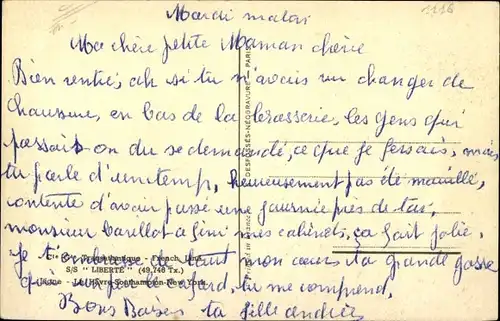 Mardi matin
Ma chère petite Maman chérie
Bien rentrée, ah si tu m'avais vu changer de
chaussure, en bas de la brasserie, les gens qui
passait on du se demandé, ce que je fessais, mais
tu parle d'un temp, heureusement pas été mouillé,
contente d'avoir passé une journie près de toi,
monsieur Carillot a fini mes cabinets, ça fait jolie,
je t'embrasse de tout mon cœur ta grande gosse
tu me comprend,
Bons Baisers ta fille andrée
Cie Gle Transatlantique - French Line
S/S " LIBERTÉ " (49,746 Tx.)
Ligne - Le Havre-Southampton-New York
DESFOSSÉS-NÉOGRAVURE - PARIS